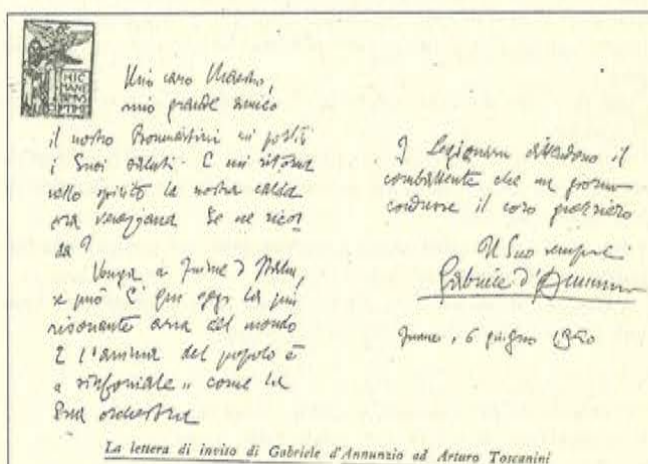 HIC
MANEBIMVS
OPTIME
Mio caro Maestro,
mio grande amico
il nostro Bonmartini mi portò
i Suoi saluti. E mi ritorna
nello spirito la nostra calda
ora veneziana. Se ne ricor
da?
Venga a Fiume d'Italia,
se può. È qui oggi la più
risonante aria del mondo
e l'anima del popolo è
"sinfoniale" come la
Sua orchestra
I legionari attendono il
combattente che un giorno
condusse il coro guerriero
Il Suo sempre
Gabriele d'Annunzio
Fiume, 6 giugno 1920
La lettera di invito di Gabriele d'Annunzio ad Arturo Toscanini